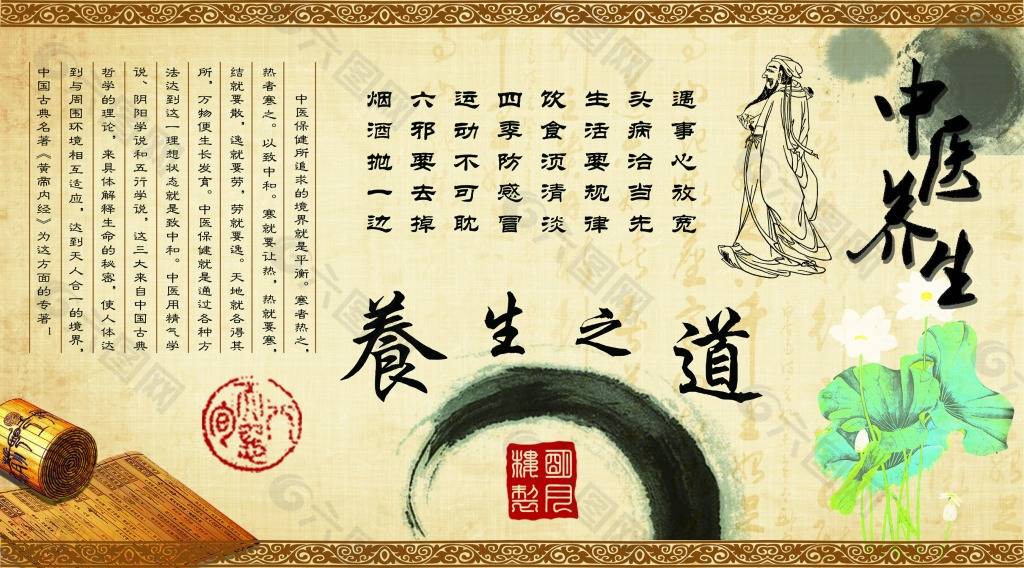 中医养生
遇事心放宽
头病治当先
生活要规律
饮食须清淡
四季防感冒
运动不可耽
六邪要去掉
烟酒抛一边
中医保健所追求的境界就是平衡。寒者热之,
热者寒之。以致中和。寒就要让热,热就要寒,
结就要散,逸就要劳,劳就要逸。天地就各得其
所,万物便生长发育。中医保健就是通过各种方
法达到这一理想状态就是致中和。中医用精气学
说、阴阳学说和五行学说,这三大来自中国古典
哲学的理论,来具体解释生命的秘密,使人体达
到与周围环境相互适应,达到天人合一的境界,
中国古典名著《黄帝内经》为这方面的专著-
養生之道
明月
樓製
六图网